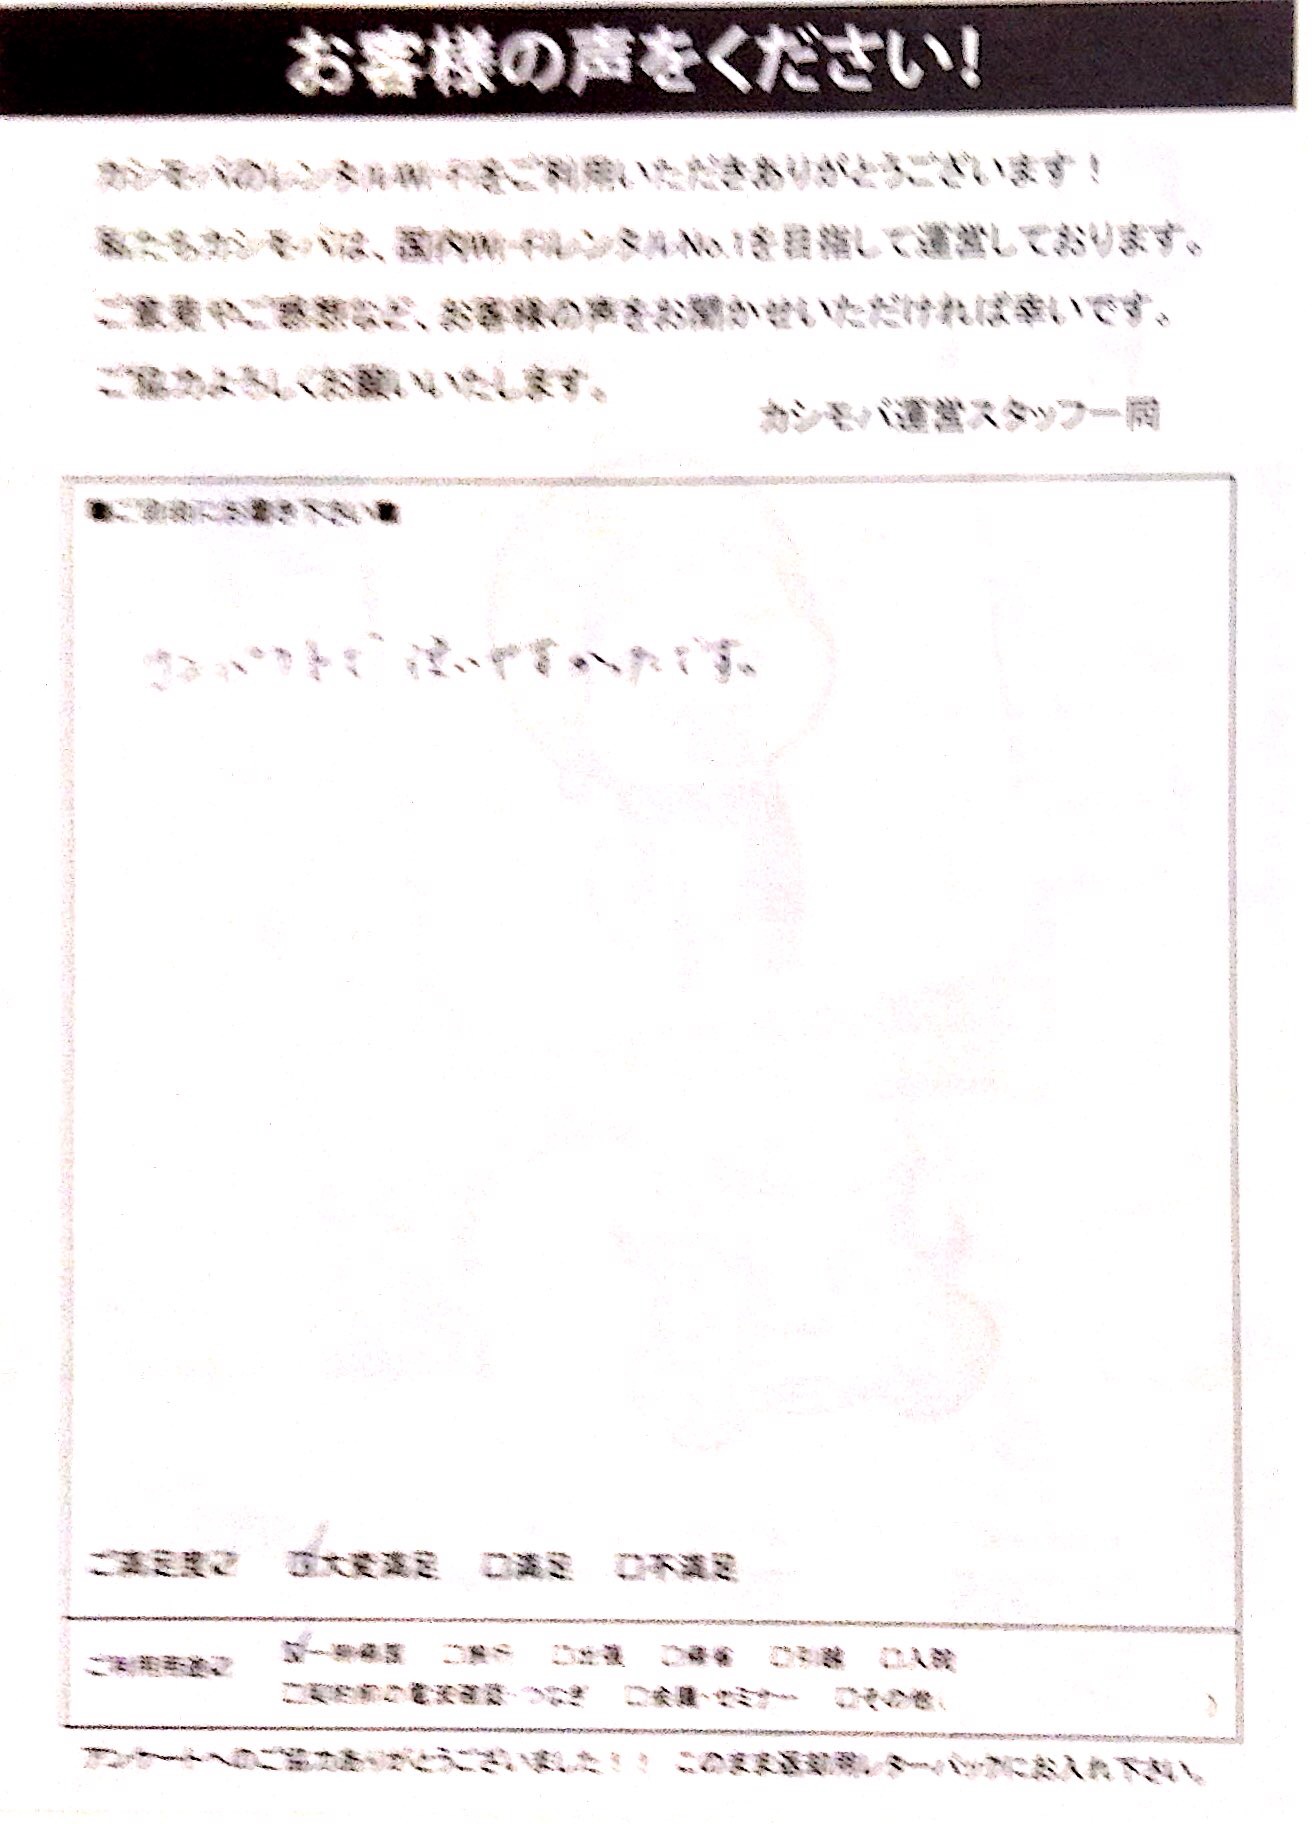 お客様の声をください!
カシモバのレンタルWi-Fiをご利用いただきありがとうございます!
私たちカシモバは、国内Wi-FiレンタルNo.1を目指して運営しております。
ご意見やご感想など、お客様の声をお聞かせいただければ幸いです。
ご協力よろしくお願いいたします。
カシモバ運営スタッフ一同
■ご自由にお書き下さい■
ご満足度は □大変満足 □満足 □不満足
ご利用用途は □一時帰国 □旅行 □出張 □帰省 □引越 □入院
□契約前の電波確認・つなぎ □会議・セミナー □その他( )
アンケートへのご協力ありがとうございました!! このまま返却用レターパックにお入れ下さい。